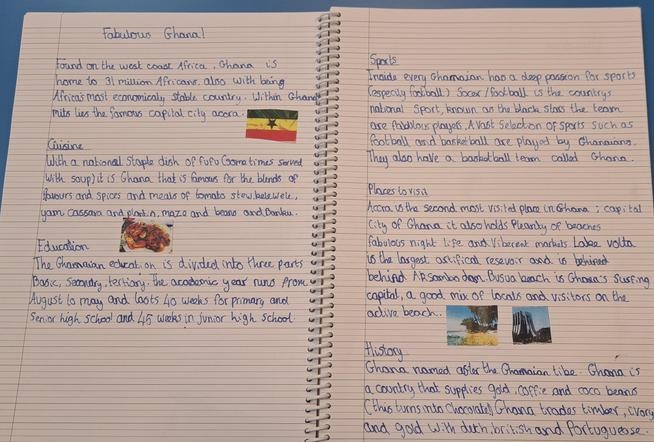 Fabulous Ghana!
Found on the west coast Africa, Ghana is
home to 31 million Africans. also with being
Africa's most economicly stable country. Within Ghana
mits lies the famous capital city acara.
Cuisine
With a national staple dish of fufu (sometimes served
with soup) it is Ghana that is famous for the blends of
flavours and spices and meals of tomato stew, kelewele,
yam cassava and plantin, maza and beans and Banku.
Education
The Ghamaian education is divided into three parts
Basic, Secondry, tertiary. the academic year runs from
August to may and lasts 40 weeks for primary and
Senior high school and 45 weeks in junior high school.
Sports
Inside every Ghamaian has a deep passion for sports
(especily football) Socer/football is the countrys
national sport, known as the black stars the team
are fabulous players. A vast selection of sports such as
football and basketball are played by Ghanaians.
They also have a basketball team called Ghana.
Places to visit
Accra is the second most visited place in Ghana; capital
City of Ghana it also holds Pleanty of beaches
fabulous night life and Viberent markets Lake volta
is the largest artifical resevoir and is behined
behind Aksombo dam. Busua beach is Ghana's Surfing
capital, a good mix of locals and visitors on the
active beach.
History
Ghana named after the Ghamaian tibe. Ghana is
a country that supplies gold, coffie and coco beans
(this turns into Chocolate). Ghana trades timber, ivory
and gold with dutch, british and Portuguease.